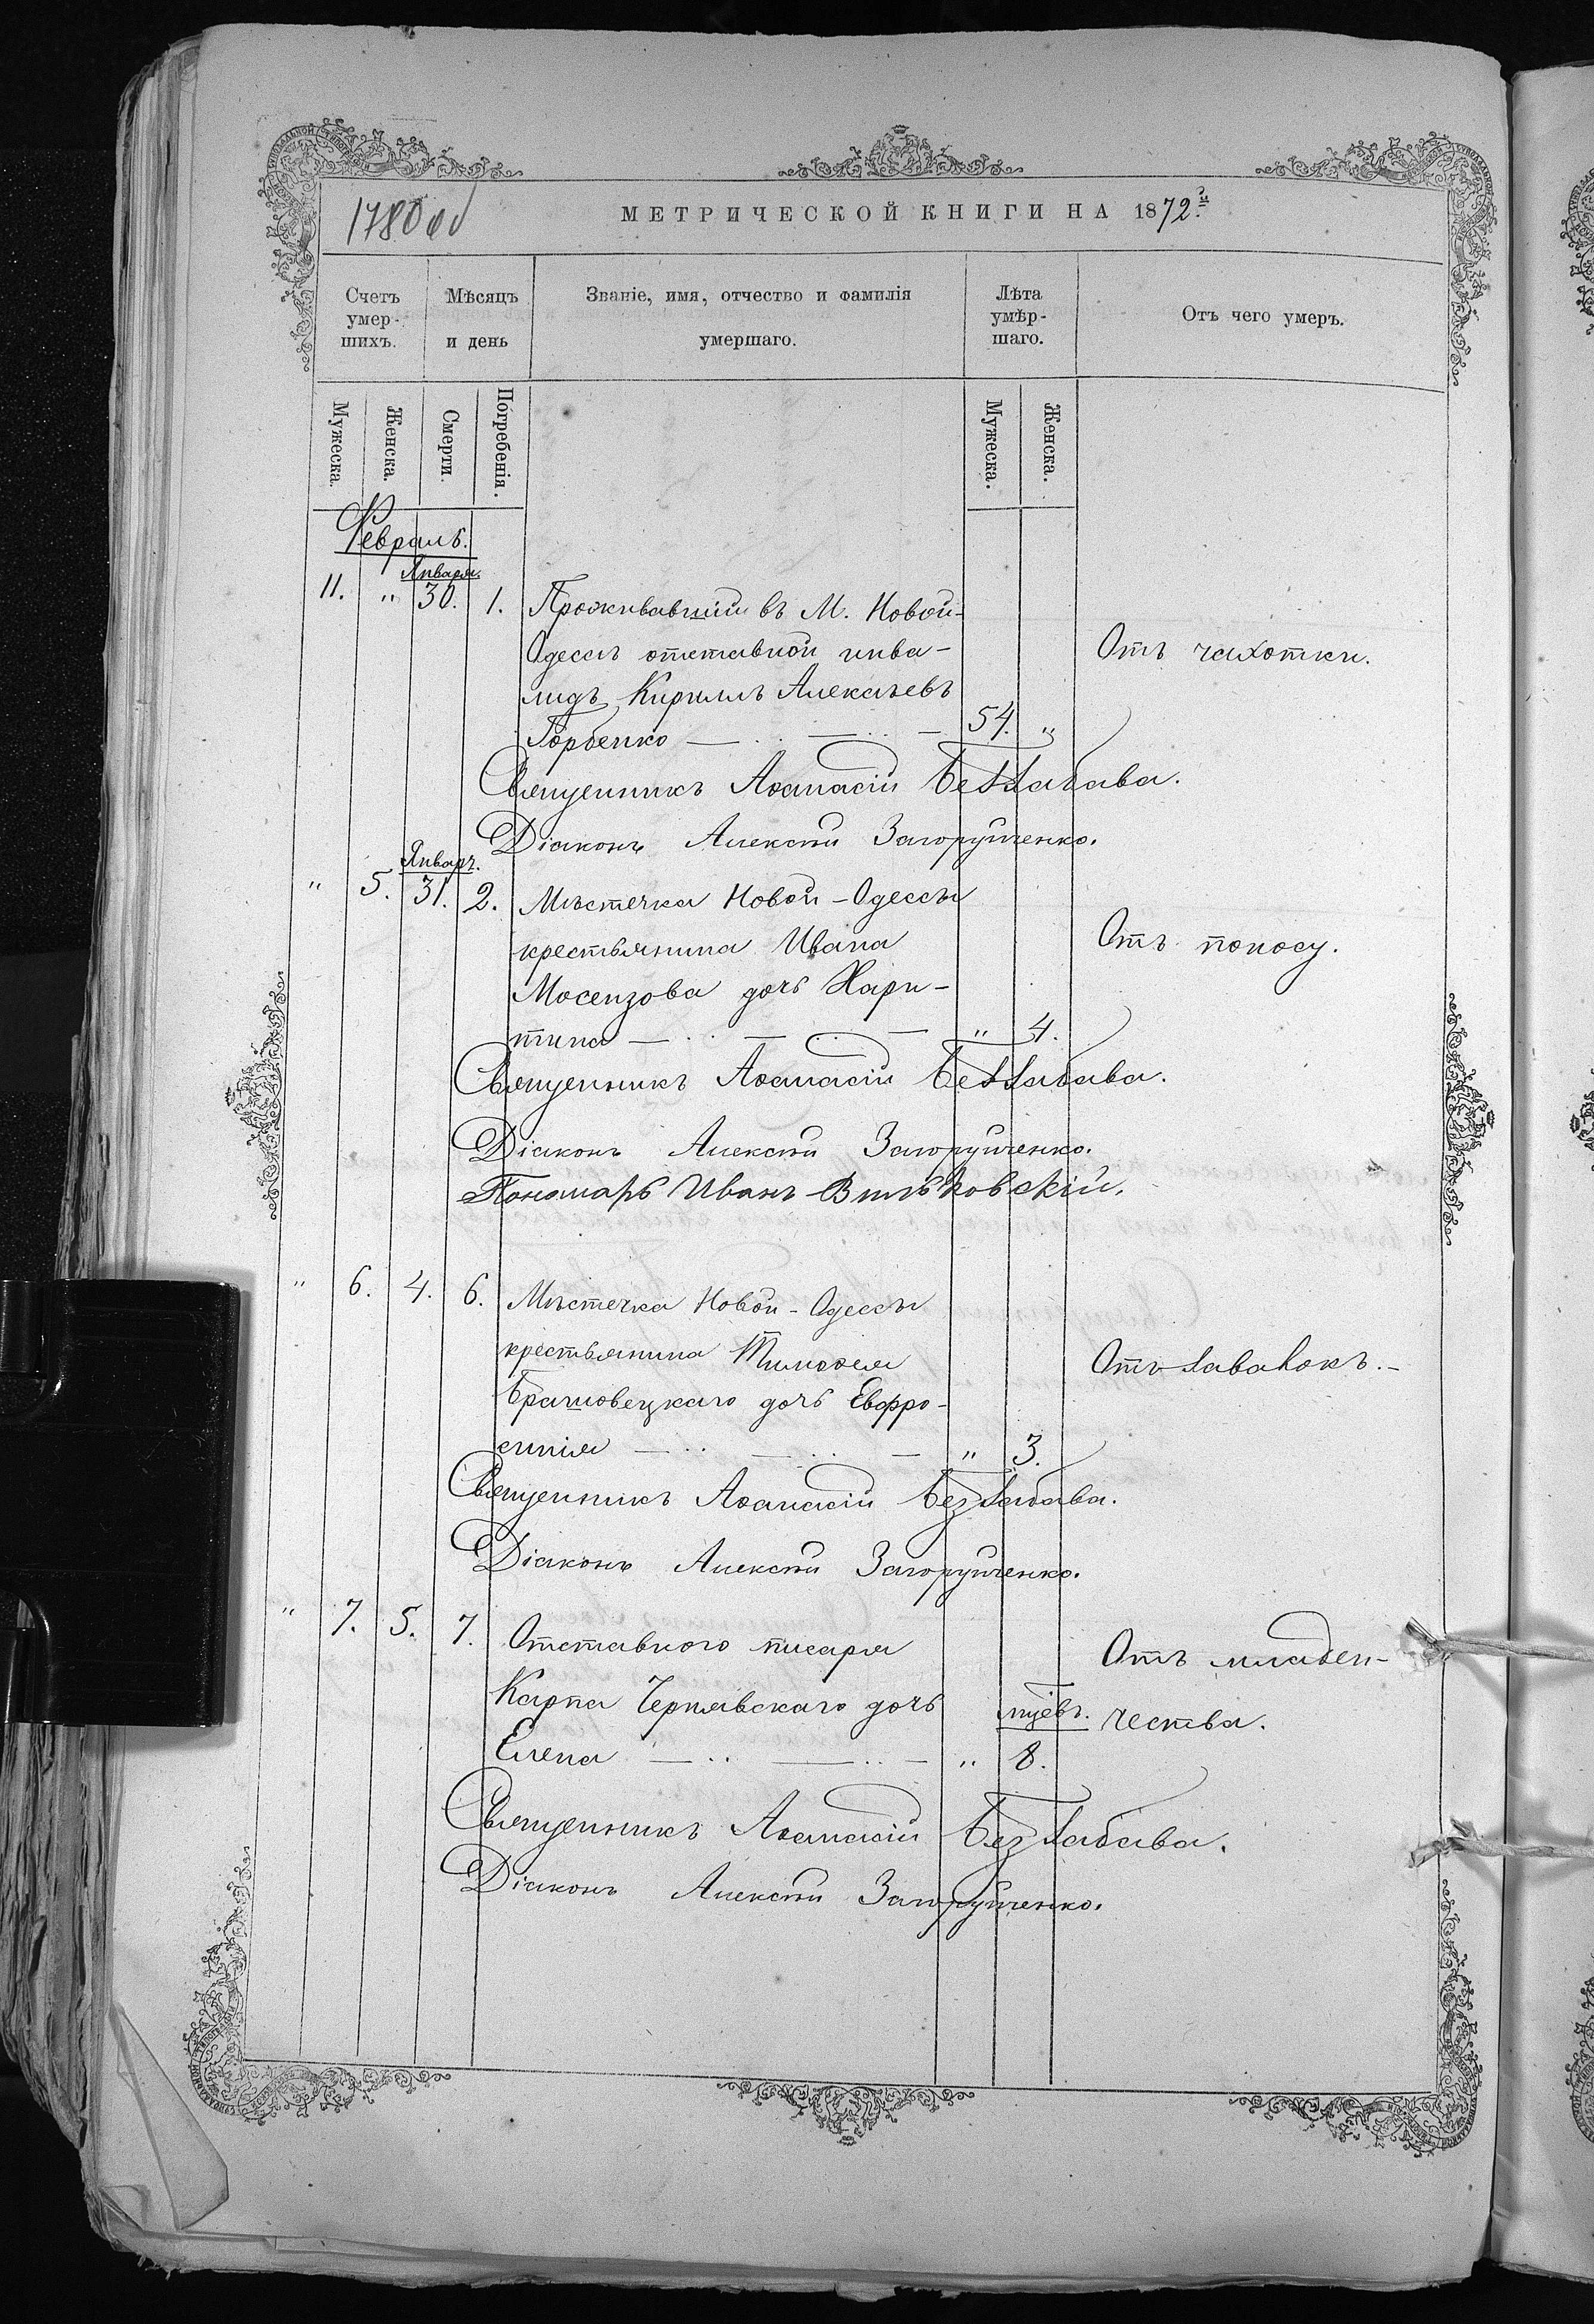 1780 об
МЕТРИЧЕСКОЙ КНИГИ НА 1872.й
Счетъ умер-шихъ.
Мѣсяцъ и день
Званіе, имя, отчество и фамилія умершаго.
Лѣта умѣр-шаго.
Отъ чего умеръ.
Мужеска.
Женска.
Смерти.
Погребенія.
Мужеска.
Женска.
Февраль.
Января.
11. " 30. 1. Проживавшій въ М. Новой-
Одессѣ отставной инва- Отъ чахотки.
лидъ Кириллъ Алексѣевъ
Горбенко 54. "
Священникъ Аѳанасій Беззабава.
Діаконъ Алексѣй Загоруйченко.
Январ.
" 5. 31. 2. Мѣстечка Новой-Одессы
крестьянина Ивана Отъ поносу.
Мосензова дочь Хари-
тина " 4.
Священникъ Аѳанасій Беззабава.
Діаконъ Алексѣй Загоруйченко.
Пономарь Иванъ Вильковскій.
" 6. 4. 6. Мѣстечка Новой-Одессы
крестьянина Тимоѳея Отъ завалокъ.
Брашовецкаго дочь Евфро-
синія " 3.
Священникъ Аѳанасій Беззабава.
Діаконъ Алексѣй Загоруйченко.
" 7. 5. 7. Отставного писаря Отъ младен-
Карпа Чернявскаго дочь мцевъ. чества.
Елена " 8.
Священникъ Аѳанасій Беззабава.
Діаконъ Алексѣй Загоруйченко.